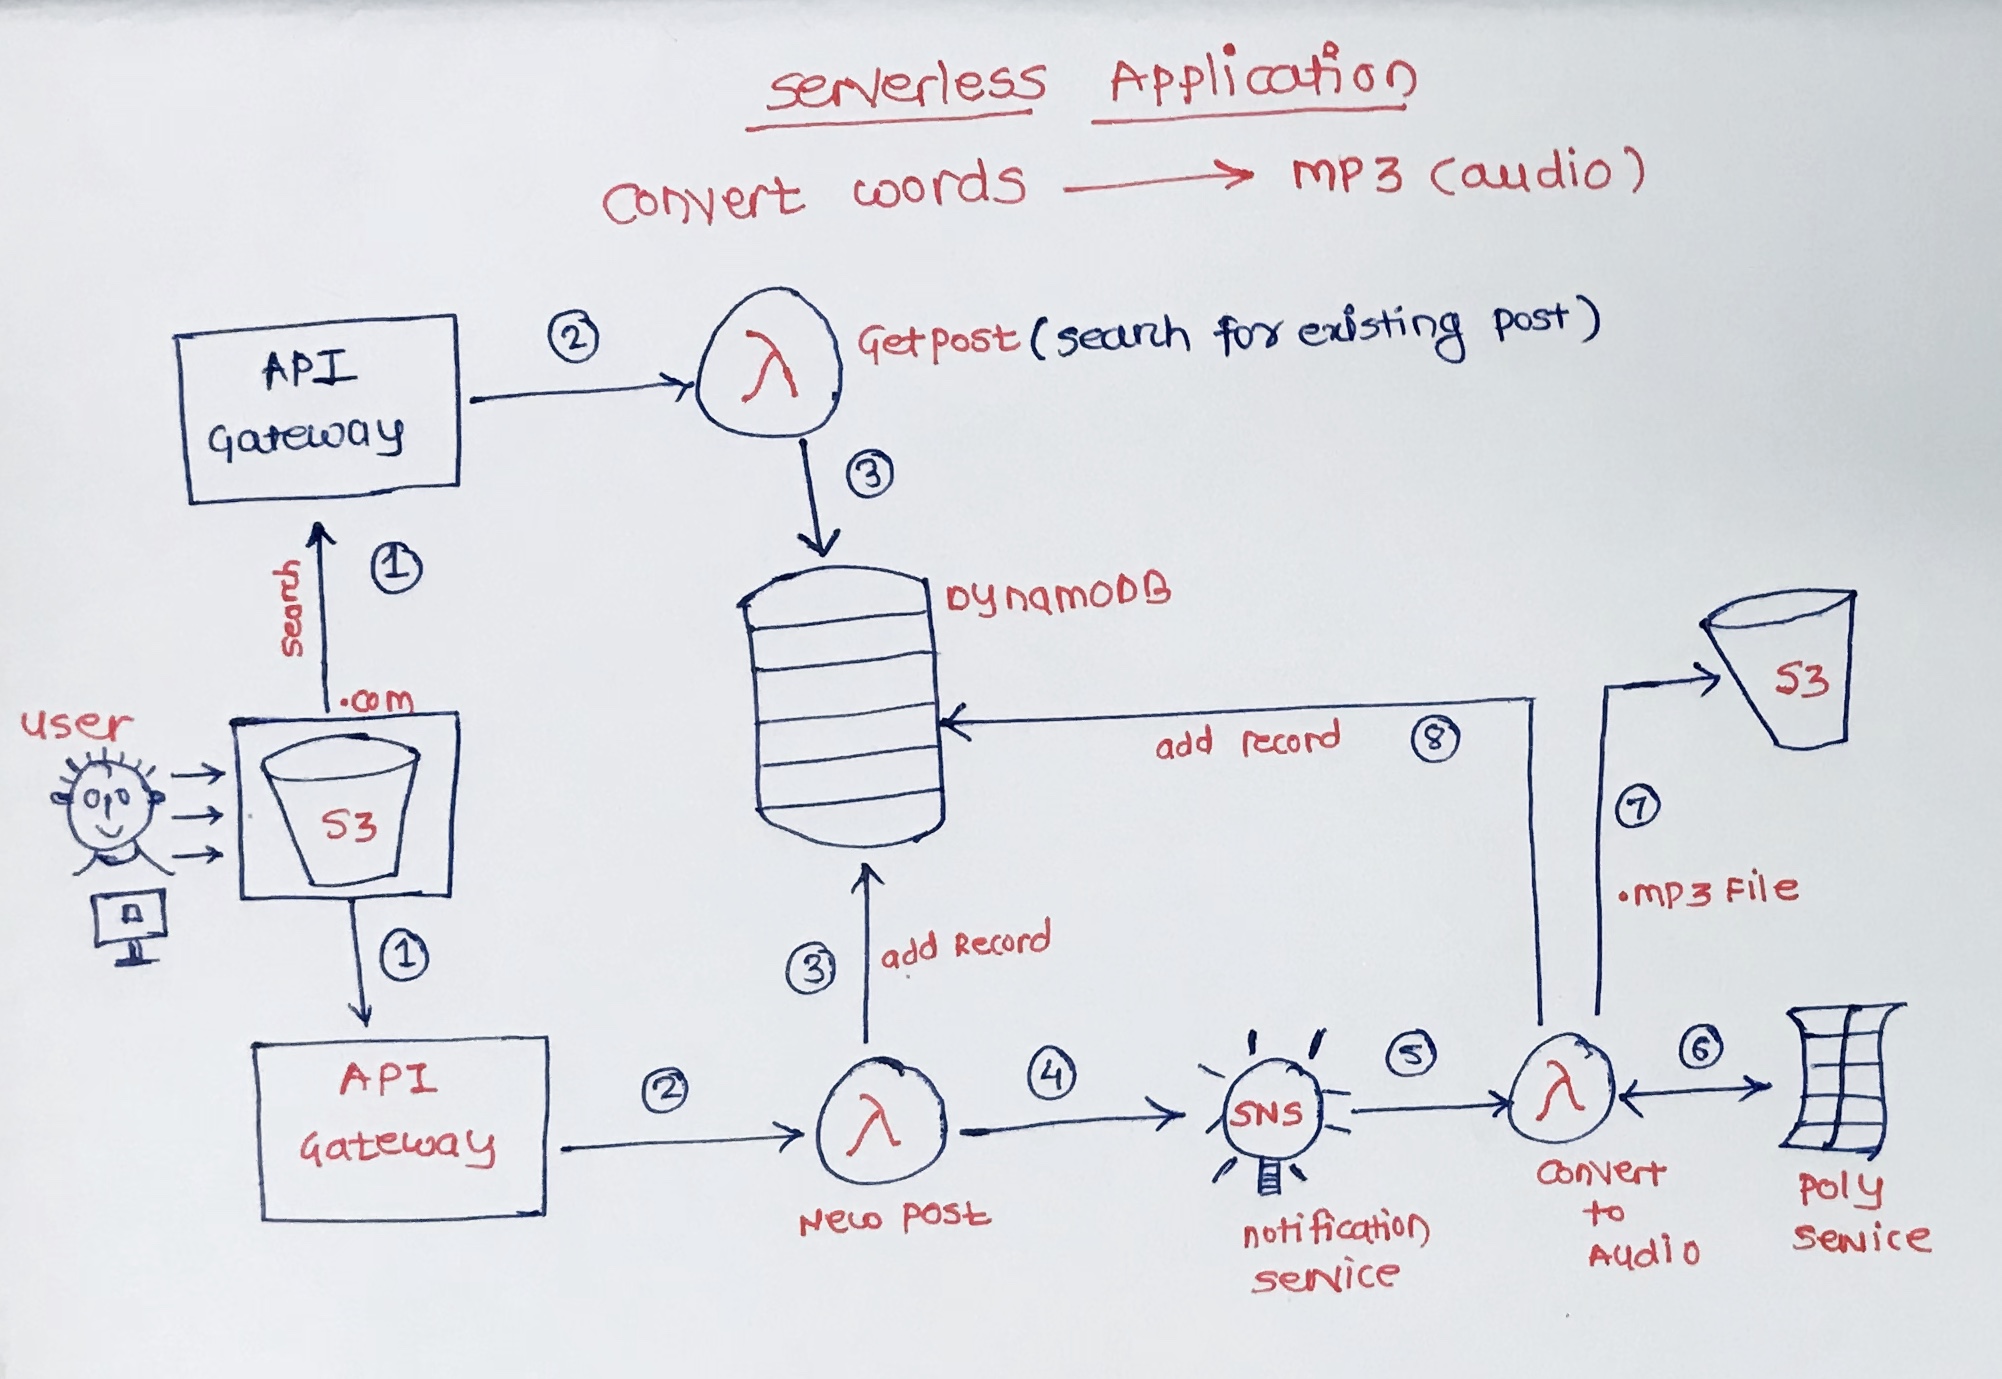 Serverless Application
Convert words → MP3 (audio)
API
Gateway
②
λ
Getpost (search for existing post)
③
search
①
DynamoDB
.com
user
S3
S3
add record
⑧
⑦
.MP3 File
①
③
add Record
API
Gateway
②
λ
New post
④
SNS
notification
service
⑤
λ
Convert
to
Audio
⑥
Poly
service